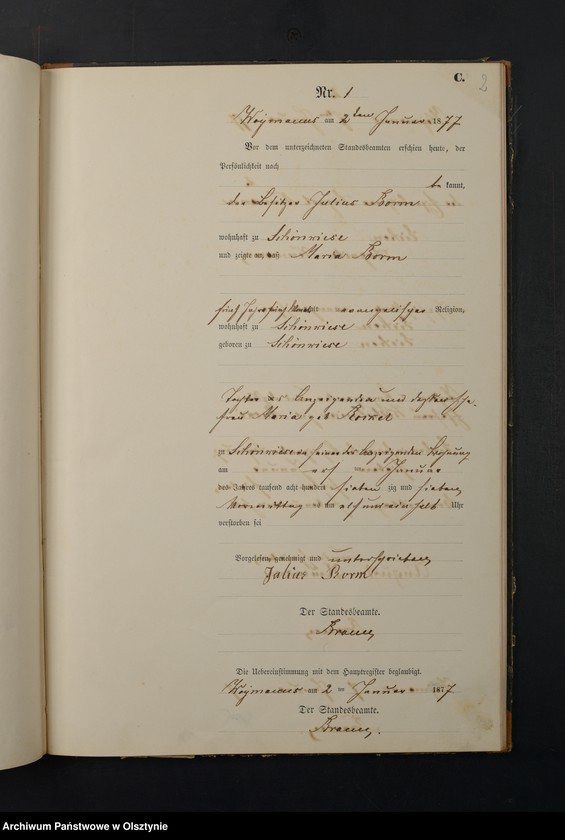 C.
2
Nr. 1
Weymanns am 2ten Januar 1877
Vor dem unterzeichneten Standesbeamten erschien heute, der
Persönlichkeit nach
be kannt,
der Besitzer Julius Borm
wohnhaft zu Schönwiese
und zeigte an, daß Maria Borm
fünf Jahr alt evangelischer Religion,
wohnhaft zu Schönwiese
geboren zu Schönwiese
Tochter des Anzeigenden und dessen Ehe-
frau Maria geb
zu Schönwiese in seiner des Anzeigenden Wohnung
am Januar
des Jahres tausend acht hundert sieben zig und sieben
Vormittag s um elf und ein halb Uhr
verstorben sei
Vorgelesen, genehmigt und unterschrieben
Julius Borm
Der Standesbeamte.
Die Uebereinstimmung mit dem Hauptregister beglaubigt.
Weymanns am 2 ten Januar 1877
Der Standesbeamte.
Archiwum Państwowe w Olsztynie